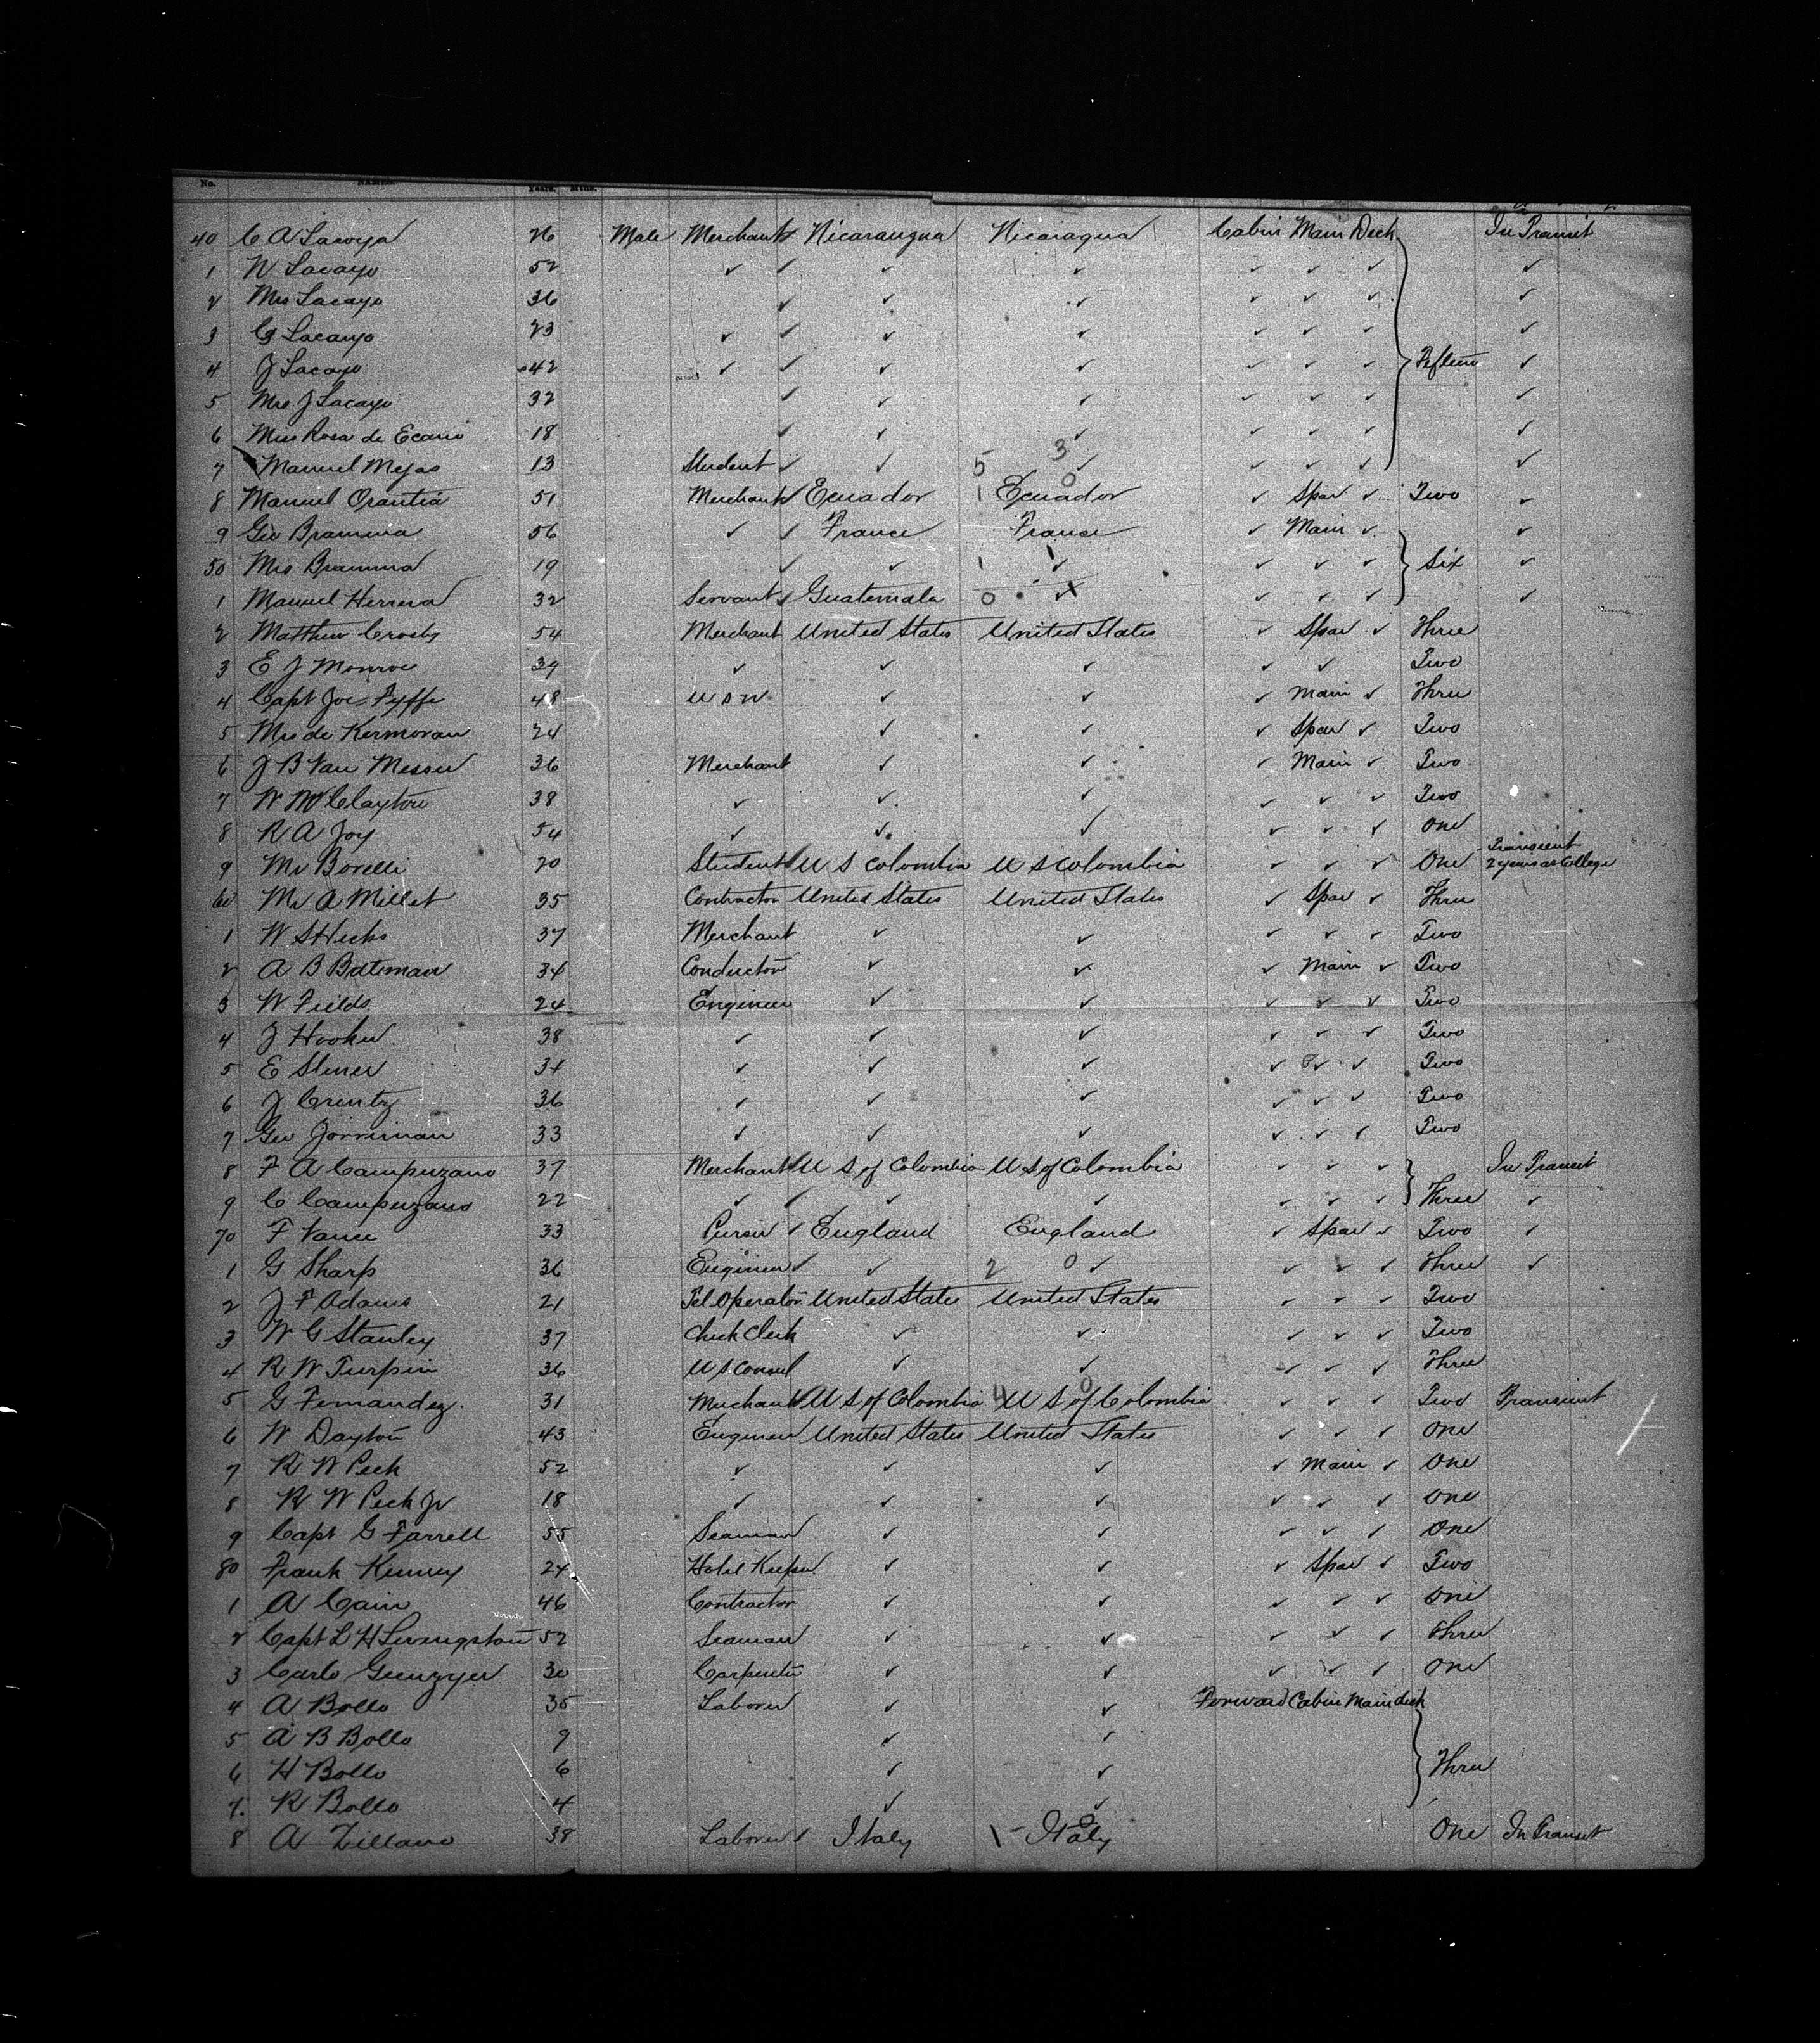 No. NAMES. Years. Mths.
40 C A Lacayo 26 Male Merchant Nicaraugua Nicaragua Cabin Main Deck In Transit
1 N Lacayo 52 ✓ ✓ ✓ ✓ ✓ ✓ ✓ ✓
2 Mrs Lacayo 36 ✓ ✓ ✓ ✓ ✓ ✓ ✓
3 G Lacayo 23 ✓ ✓ ✓ ✓ ✓ ✓ ✓ ✓
4 J Lacayo 42 ✓ ✓ ✓ ✓ ✓ ✓ ✓ Fifteen ✓
5 Mrs J Lacayo 32 ✓ ✓ ✓ ✓ ✓ ✓ ✓
6 Miss Rosa de 18 ✓ ✓ ✓ ✓ ✓ ✓ ✓
7 Manuel Mejas 13 Student ✓ ✓ 5 3 ✓ ✓ ✓ ✓ ✓
8 Manuel Orantia 51 Merchant Ecuador 1 0 Ecuador ✓ Spar ✓ Two ✓
9 Geo Bramma 56 ✓ ✓ France France ✓ Main ✓ ✓
50 Mrs Bramma 19 ✓ ✓ 1 1 ✓ ✓ ✓ ✓ Six ✓
1 Manuel Herrera 32 Servant Guatemala 0 ✓ ✓ ✓ ✓ ✓
2 Matthew Crosby 54 Merchant United States United States ✓ Spar ✓ Three
3 E J Monroe 39 ✓ ✓ ✓ ✓ ✓ Two
4 Capt Joe Fyffe 48 U S N ✓ ✓ ✓ Main ✓ Three
5 Mrs de Kermoran 24 ✓ ✓ ✓ Spar ✓ Two
6 J B Van Messer 36 Merchant ✓ ✓ ✓ Main ✓ Two
7 W W Clayton 38 ✓ ✓ ✓ ✓ ✓ ✓ Two
8 R A Joy 54 ✓ ✓ ✓ ✓ ✓ ✓ One
9 Mr Borelli 20 Student U S Colombia U S Colombia ✓ ✓ ✓ One Transient 2 years at College
60 Mr A Millet 35 Contractor United States United States ✓ Spar ✓ Three
1 W S Hicks 37 Merchant ✓ ✓ ✓ ✓ ✓ Two
2 A B Bateman 34 Conductor ✓ ✓ ✓ Main ✓ Two
3 W Fields 24 Engineer ✓ ✓ ✓ ✓ ✓ Two
4 J Hooker 38 ✓ ✓ ✓ ✓ ✓ ✓ Two
5 E Stener 34 ✓ ✓ ✓ ✓ ✓ ✓ Two
6 J Crentz 36 ✓ ✓ ✓ ✓ ✓ ✓ Two
7 Geo Jorriman 33 ✓ ✓ ✓ ✓ ✓ ✓ Two
8 F A Campuzano 37 Merchant U S of Colombia U S of Colombia ✓ ✓ ✓ In Transit
9 C Campuzano 22 ✓ ✓ ✓ ✓ ✓ ✓ ✓ Three ✓
70 F Vance 33 Purser ✓ England England ✓ Spar ✓ Two ✓
1 G Sharp 36 Engineer ✓ ✓ 2 0 ✓ ✓ ✓ ✓ Three ✓
2 J F Adams 21 Tel Operator United States United States ✓ ✓ ✓ Two
3 W G Stanley 37 Check Clerk ✓ ✓ ✓ ✓ ✓ Two
4 R W Turpin 36 U S Consul ✓ ✓ ✓ ✓ ✓ Three
5 G Fernandez 31 Merchant U S of Colombia 4 0 U S of Colombia ✓ ✓ ✓ Two Transient
6 W Dayton 43 Engineer United States United States ✓ ✓ ✓ One
7 R W Peck 52 ✓ ✓ ✓ ✓ Main ✓ One
8 R W Peck Jr 18 ✓ ✓ ✓ ✓ ✓ ✓ One
9 Capt G Farrell 55 Seaman ✓ ✓ ✓ ✓ ✓ One
80 Frank Kenney 24 Hotel Keeper ✓ ✓ ✓ Spar ✓ Two
1 A Cain 46 Contractor ✓ ✓ ✓ ✓ ✓ One
2 Capt L H Livingston 52 Seaman ✓ ✓ ✓ ✓ ✓ Three
3 Carlo 30 Carpenter ✓ ✓ ✓ ✓ ✓ One
4 A Bollo 35 Laborer ✓ ✓ Forward Cabin Main deck
5 A B Bollo 9 ✓ ✓
6 H Bollo 6 ✓ ✓ Three
7 R Bollo 4 ✓ ✓
8 A Zillano 38 Laborer ✓ Italy 1 0 Italy One In Transit